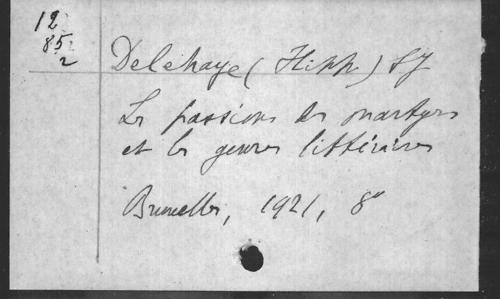 12
85
2
Delehaye (Hipp) SJ
Les passions des martyrs
et les genres littéraires
Bruxelles, 1921, 8°